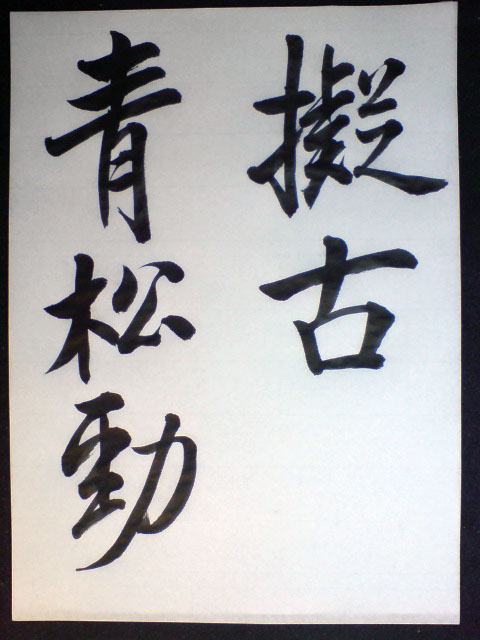 擬古
青松勁